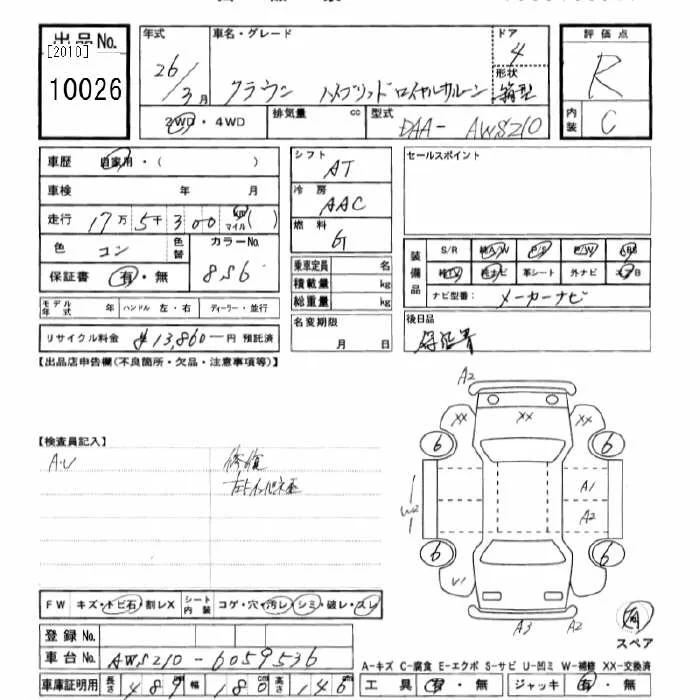 出品No.
[2010]
10026
年式 26/3月
車名・グレード クラウン ハイブリッド ロイヤルサルーン
ドア 4
形状 箱型
評価点 R
内装 C
2WD・4WD
排気量 cc
型式 DAA-AWS210
車歴 自家用・( )
車検 年 月
走行 17万5千300 km マイル ( )
色 コン
色替
カラーNo. 8S6
保証書 有・無
モデル年式 年
ハンドル 左・右
ディーラー・並行
リサイクル料金 ¥13,860-円 預託済
シフト AT
冷房 AAC
燃料 G
乗車定員 名
積載量 kg
総重量 kg
名変期限 月 日
セールスポイント
装備品
S/R 純A/W P/S P/W ABS
純TV 純ナビ 革シート 外ナビ エアB
ナビ型番: メーカーナビ
後日品
保証書
【出品店申告欄(不良箇所・欠品・注意事項等)】
【検査員記入】
A・U
修復
FW キズ・トビ石・割レX
シート内装 コゲ・穴・汚レ・シミ・破レ・スレ
登録No.
車台No. AWS210-6059536
車庫証明用 長さ 489 幅 180 高さ 146
A2
XX XX XX
6 6
A1
W2
A2
6 6
A3 A2
有
スペア
A-キズ C-腐食 E-エクボ S-サビ U-凹ミ W-補修 XX-交換済
工具 有・無 ジャッキ 有・無